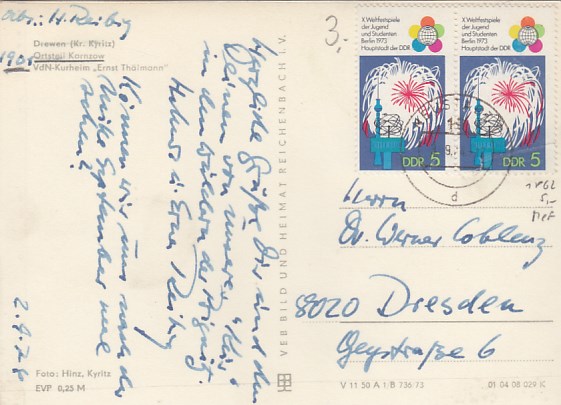 Abs.: H. Reibig
190
Drewen (Kr. Kyritz)
Ortsteil Karnzow
VdN-Kurheim „Ernst Thälmann"
Herzliche Grüße Dir und den
Deinen von unserer „Kur"
in den Wäldern der Prignitz.
Helmut u. Erna Reibig
Können wir uns nach der
Mitte September mal
sehen?
2.9.76
Foto: Hinz, Kyritz
EVP 0,25 M
VEB BILD UND HEIMAT REICHENBACH i. V.
3,-
X. Weltfestspiele
der Jugend
und Studenten
Berlin 1973
Hauptstadt der DDR
DDR 5
X. Weltfestspiele
der Jugend
und Studenten
Berlin 1973
Hauptstadt der DDR
DDR 5
d
1862
5,-
MeF
Herrn
Dr. Werner Coblenz
8020 Dresden
Geystraße 6
V 11 50 A 1 B 736 73
01 04 08 029 K